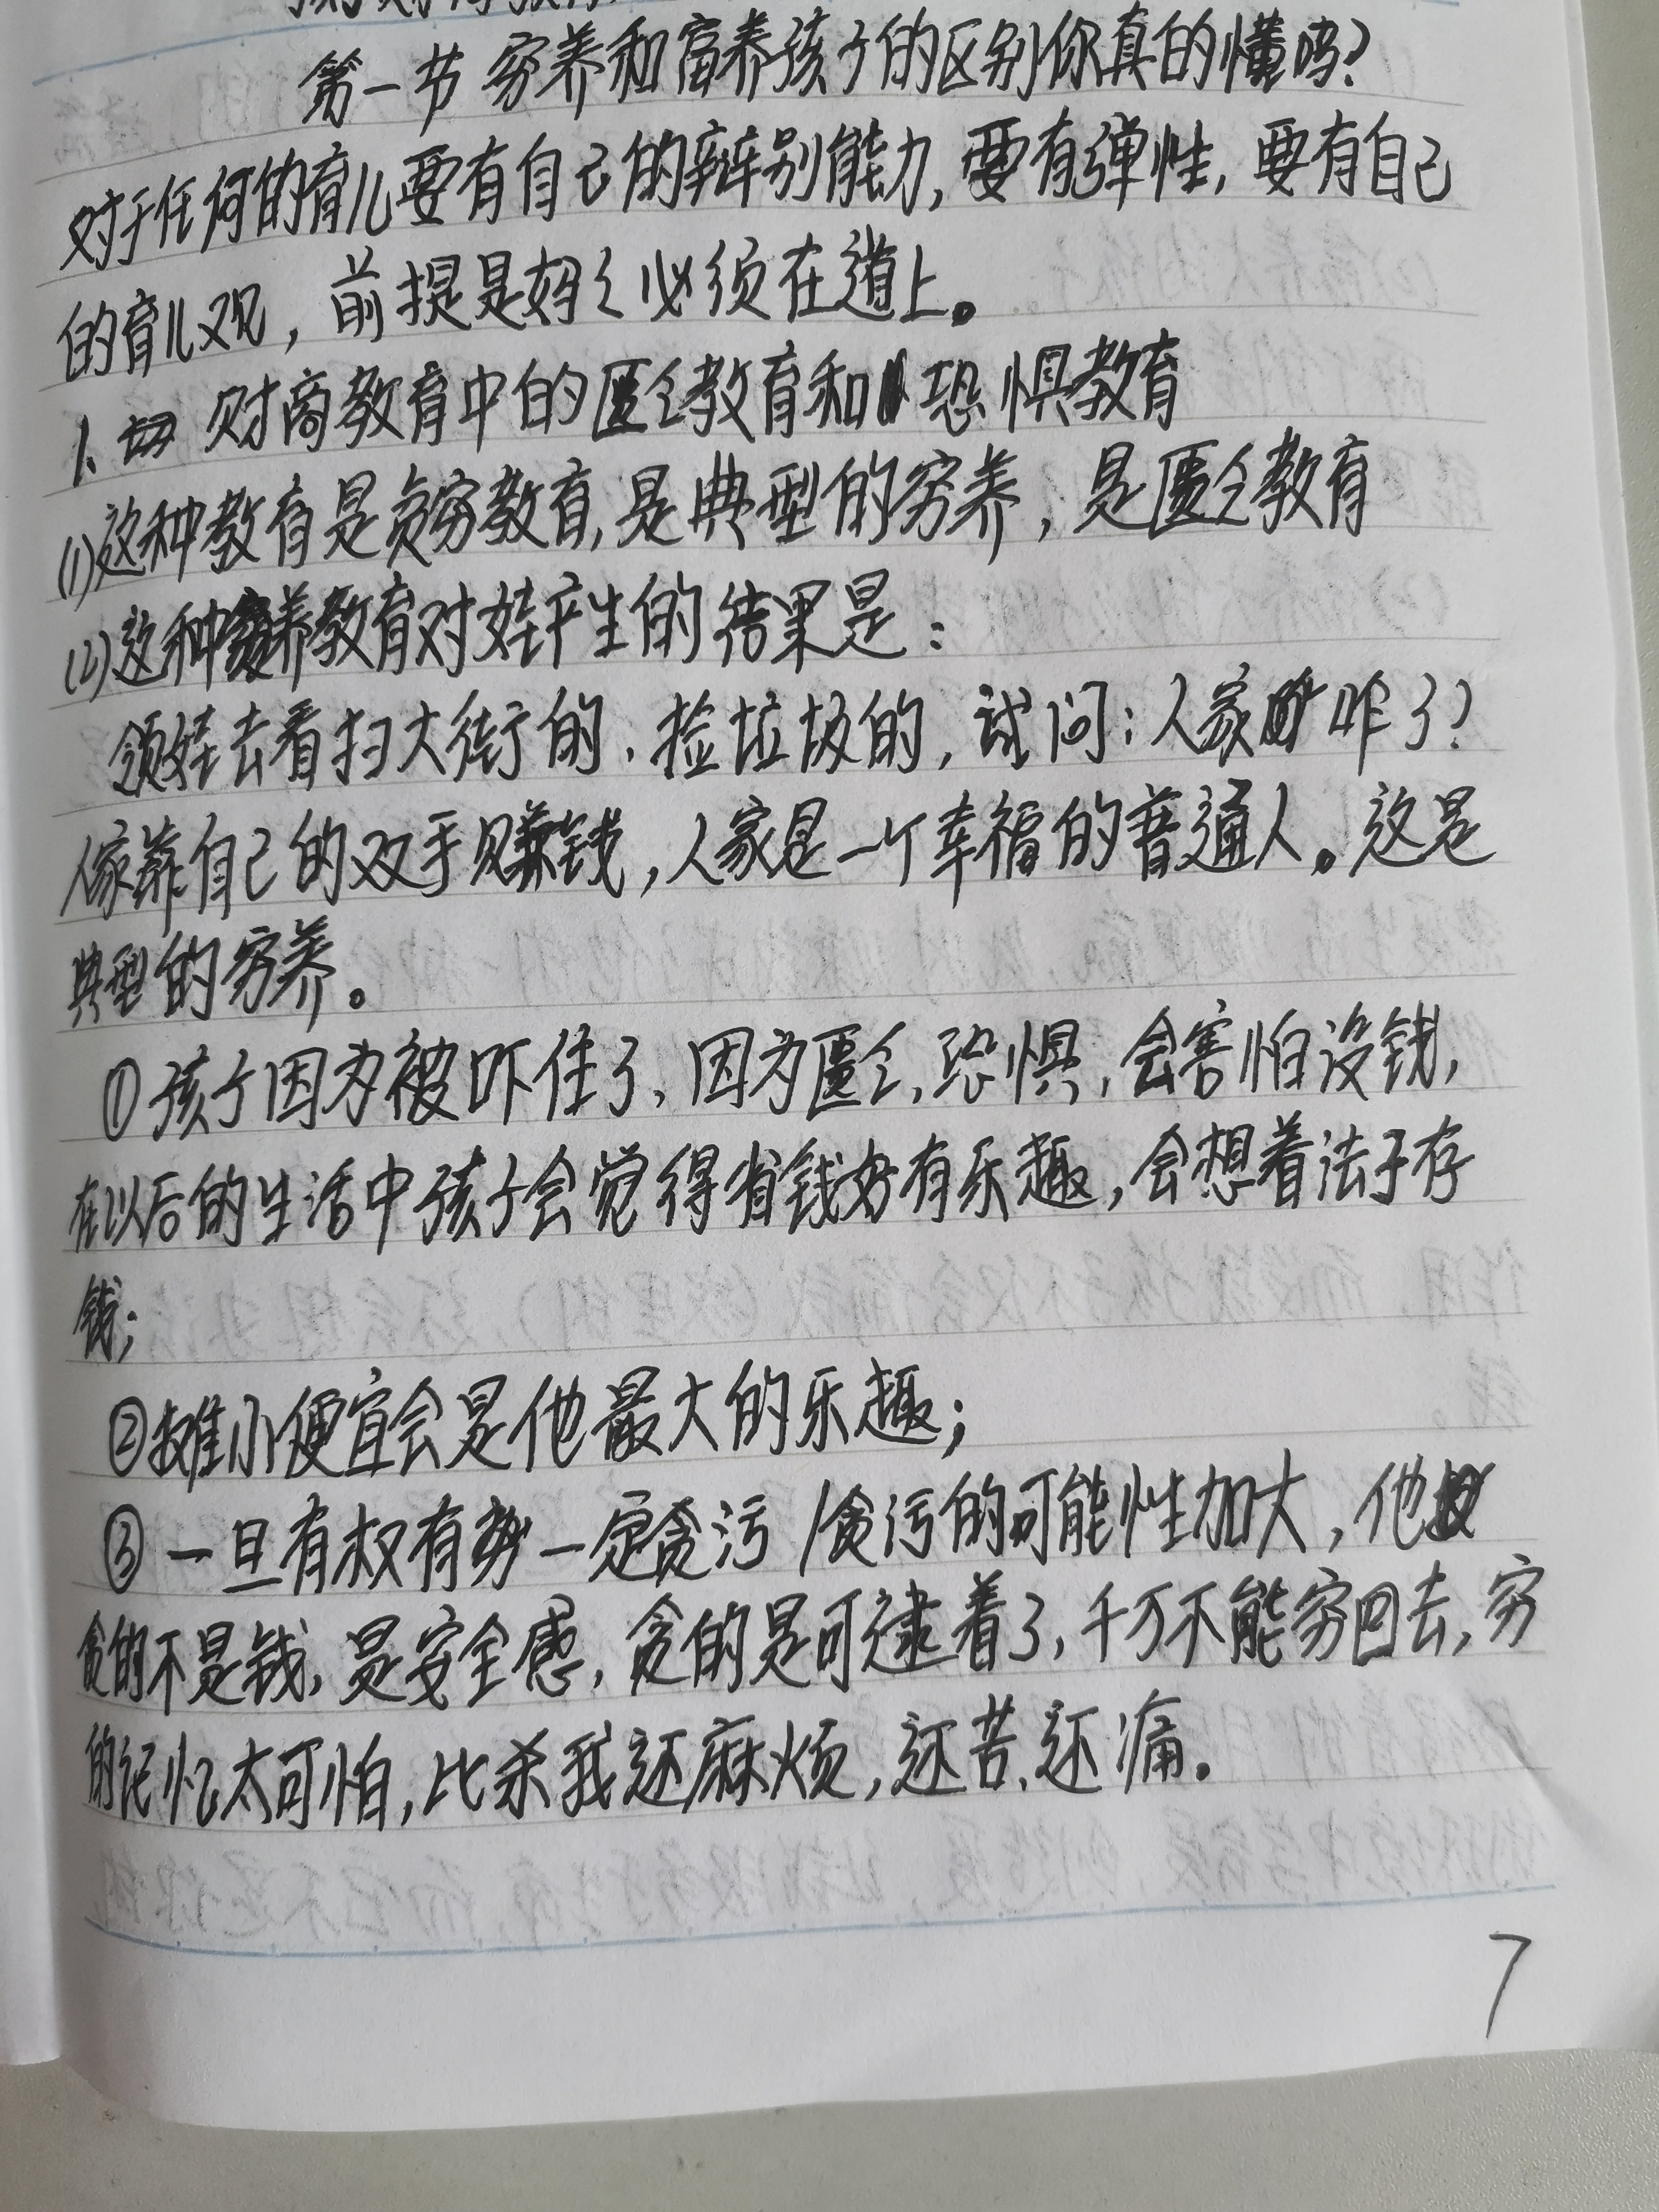 第一节 穷养和富养孩子的区别你真的懂吗?
对于任何的育儿要有自己的辩别能力,要有弹性,要有自己
的育儿观,前提是妈々必须在道上。
1、财商教育中的匮乏教育和恐惧教育
(1)这种教育是贫穷教育,是典型的穷养,是匮乏教育
(2)这种穷养教育对娃产生的结果是:
领娃去看扫大街的、捡垃圾的,试问:人家咋了?
人家靠自己的双手赚钱,人家是一个幸福的普通人。这是
典型的穷养。
①孩子因为被吓住了、因为匮乏,恐惧,会害怕没钱,
在以后的生活中孩子会觉得省钱好有乐趣,会想着法子存
钱;
②摊小便宜会是他最大的乐趣;
③一旦有权有势一定贪污/贪污的可能性加大,他
贪的不是钱,是安全感,贪的是可逮着了,千万不能穷回去,穷
的记忆太可怕,比杀我还麻烦,还苦、还痛。
7